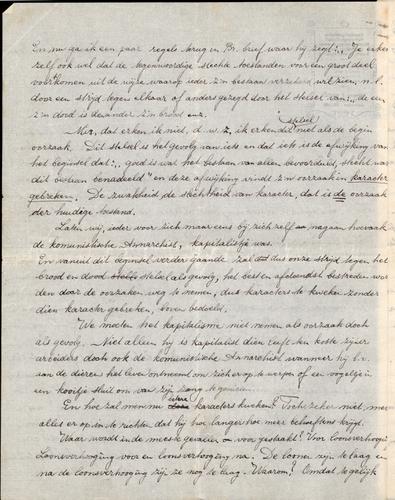 En nu ga ik een paar regels terug in Br. brief waar hij zegt: „Je erken
zelf ook wel dat de tegenwoordige slechte toestanden voor een groot deel
voortkomen uit de wijze waarop ieder z'n bestaan verzekerd wil zien, n.l.
door een strijd tegen elkaar of anders gezegd door het stelsel van: „de een
z'n dood is de ander z'n brood enz.
Nu, dat erken ik niet, d.w.z, ik erken dit stelsel niet als de begin
oorzaak. Dit stelsel is het gevolg van iets en dat iets is de afwijking van
het beginsel dat: „goed is wat het bestaan van allen bevordert, slecht wat
dit bestaan benadeeld" en deze afwijking vindt z'n oorzaak in karacter
gebreken. De zwakheid, de slechtheid van karacter, dat is de oorzaak
der huidige toestand.
Laten wij, ieder voor zich maar eens bij zich zelf nagaan hoe vaak
de komunistische Anarchist, kapitalistje was.
En vanuit dit beginsel verder gaande zal dus onze strijd tegen het
brood en dood stelsel als gevolg, het best en afdoendst bestreden wor
den door de oorzaken weg te nemen, dus karacters te kweken zonder
dien karacter gebreken, boven bedoeld.
We moeten het kapitalisme niet nemen als oorzaak doch
als gevolg. Niet alleen hij is kapitalist die leeft ten koste zijner
arbeiders doch ook de komunistische Anarchist wanneer hij b.v.
aan de dieren het leven ontneemt om zich er op te werpen of een vogeltje in
een kooitje sluit om van zijn zang te genieten.
En hoe zal men nu karacters kweken? Toch zeker niet, met
alles er op en te richten dat hij hoe langer hoe meer behoeftens krijgt.
Waar wordt in de meeste gevallen voor gestaakt? Voor loonsverhoging
Loonsverhoging voor en loonsverhoging na. De lonen zijn te laag en
na de loonsverhoging zijn ze nog te laag. Waarom? Omdat te gelijk